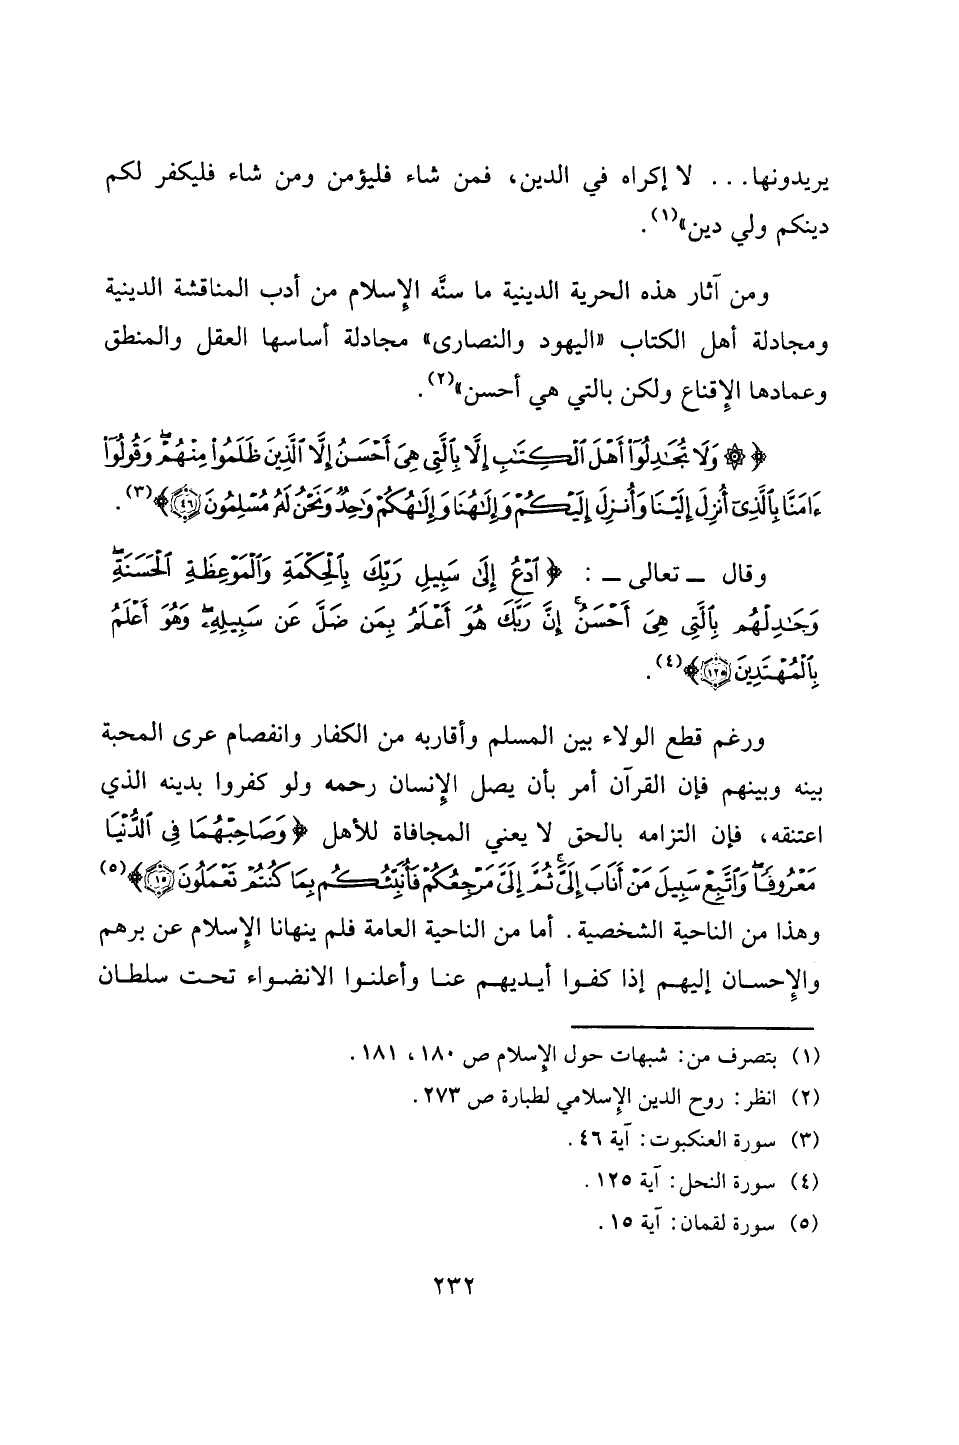 يريدونها... لا إكراه في الدين، فمن شاء فليؤمن ومن شاء فليكفر لكم
دينكم ولي دين»(١).
ومن آثار هذه الحرية الدينية ما سنَّه الإسلام من أدب المناقشة الدينية
ومجادلة أهل الكتاب «اليهود والنصارى» مجادلة أساسها العقل والمنطق
وعمادها الإقناع ولكن بالتي هي أحسن»(٢).
﴿ ۞ وَلَا تُجَٰدِلُوٓا۟ أَهْلَ ٱلْكِتَٰبِ إِلَّا بِٱلَّتِى هِىَ أَحْسَنُ إِلَّا ٱلَّذِينَ ظَلَمُوا۟ مِنْهُمْ ۖ وَقُولُوٓا۟
ءَامَنَّا بِٱلَّذِىٓ أُنزِلَ إِلَيْنَا وَأُنزِلَ إِلَيْكُمْ وَإِلَٰهُنَا وَإِلَٰهُكُمْ وَٰحِدٌ وَنَحْنُ لَهُۥ مُسْلِمُونَ ۝٤٦﴾(٣).
وقال ـ تعالى ـ : ﴿ ٱدْعُ إِلَىٰ سَبِيلِ رَبِّكَ بِٱلْحِكْمَةِ وَٱلْمَوْعِظَةِ ٱلْحَسَنَةِ ۖ
وَجَٰدِلْهُم بِٱلَّتِى هِىَ أَحْسَنُ ۚ إِنَّ رَبَّكَ هُوَ أَعْلَمُ بِمَن ضَلَّ عَن سَبِيلِهِۦ ۖ وَهُوَ أَعْلَمُ
بِٱلْمُهْتَدِينَ ۝١٢٥﴾(٤).
ورغم قطع الولاء بين المسلم وأقاربه من الكفار وانفصام عرى المحبة
بينه وبينهم فإن القرآن أمر بأن يصل الإنسان رحمه ولو كفروا بدينه الذي
اعتنقه، فإن التزامه بالحق لا يعني المجافاة للأهل ﴿ وَصَاحِبْهُمَا فِى ٱلدُّنْيَا
مَعْرُوفًا ۖ وَٱتَّبِعْ سَبِيلَ مَنْ أَنَابَ إِلَىَّ ۚ ثُمَّ إِلَىَّ مَرْجِعُكُمْ فَأُنَبِّئُكُم بِمَا كُنتُمْ تَعْمَلُونَ ۝١٥﴾(٥)
وهذا من الناحية الشخصية. أما من الناحية العامة فلم ينهانا الإسلام عن برهم
والإحسان إليهم إذا كفوا أيديهم عنا وأعلنوا الانضواء تحت سلطان
(١) بتصرف من: شبهات حول الإسلام ص ١٨٠، ١٨١.
(٢) انظر: روح الدين الإسلامي لطبارة ص ٢٧٣.
(٣) سورة العنكبوت: آية ٤٦.
(٤) سورة النحل: آية ١٢٥.
(٥) سورة لقمان: آية ١٥.
٢٣٢